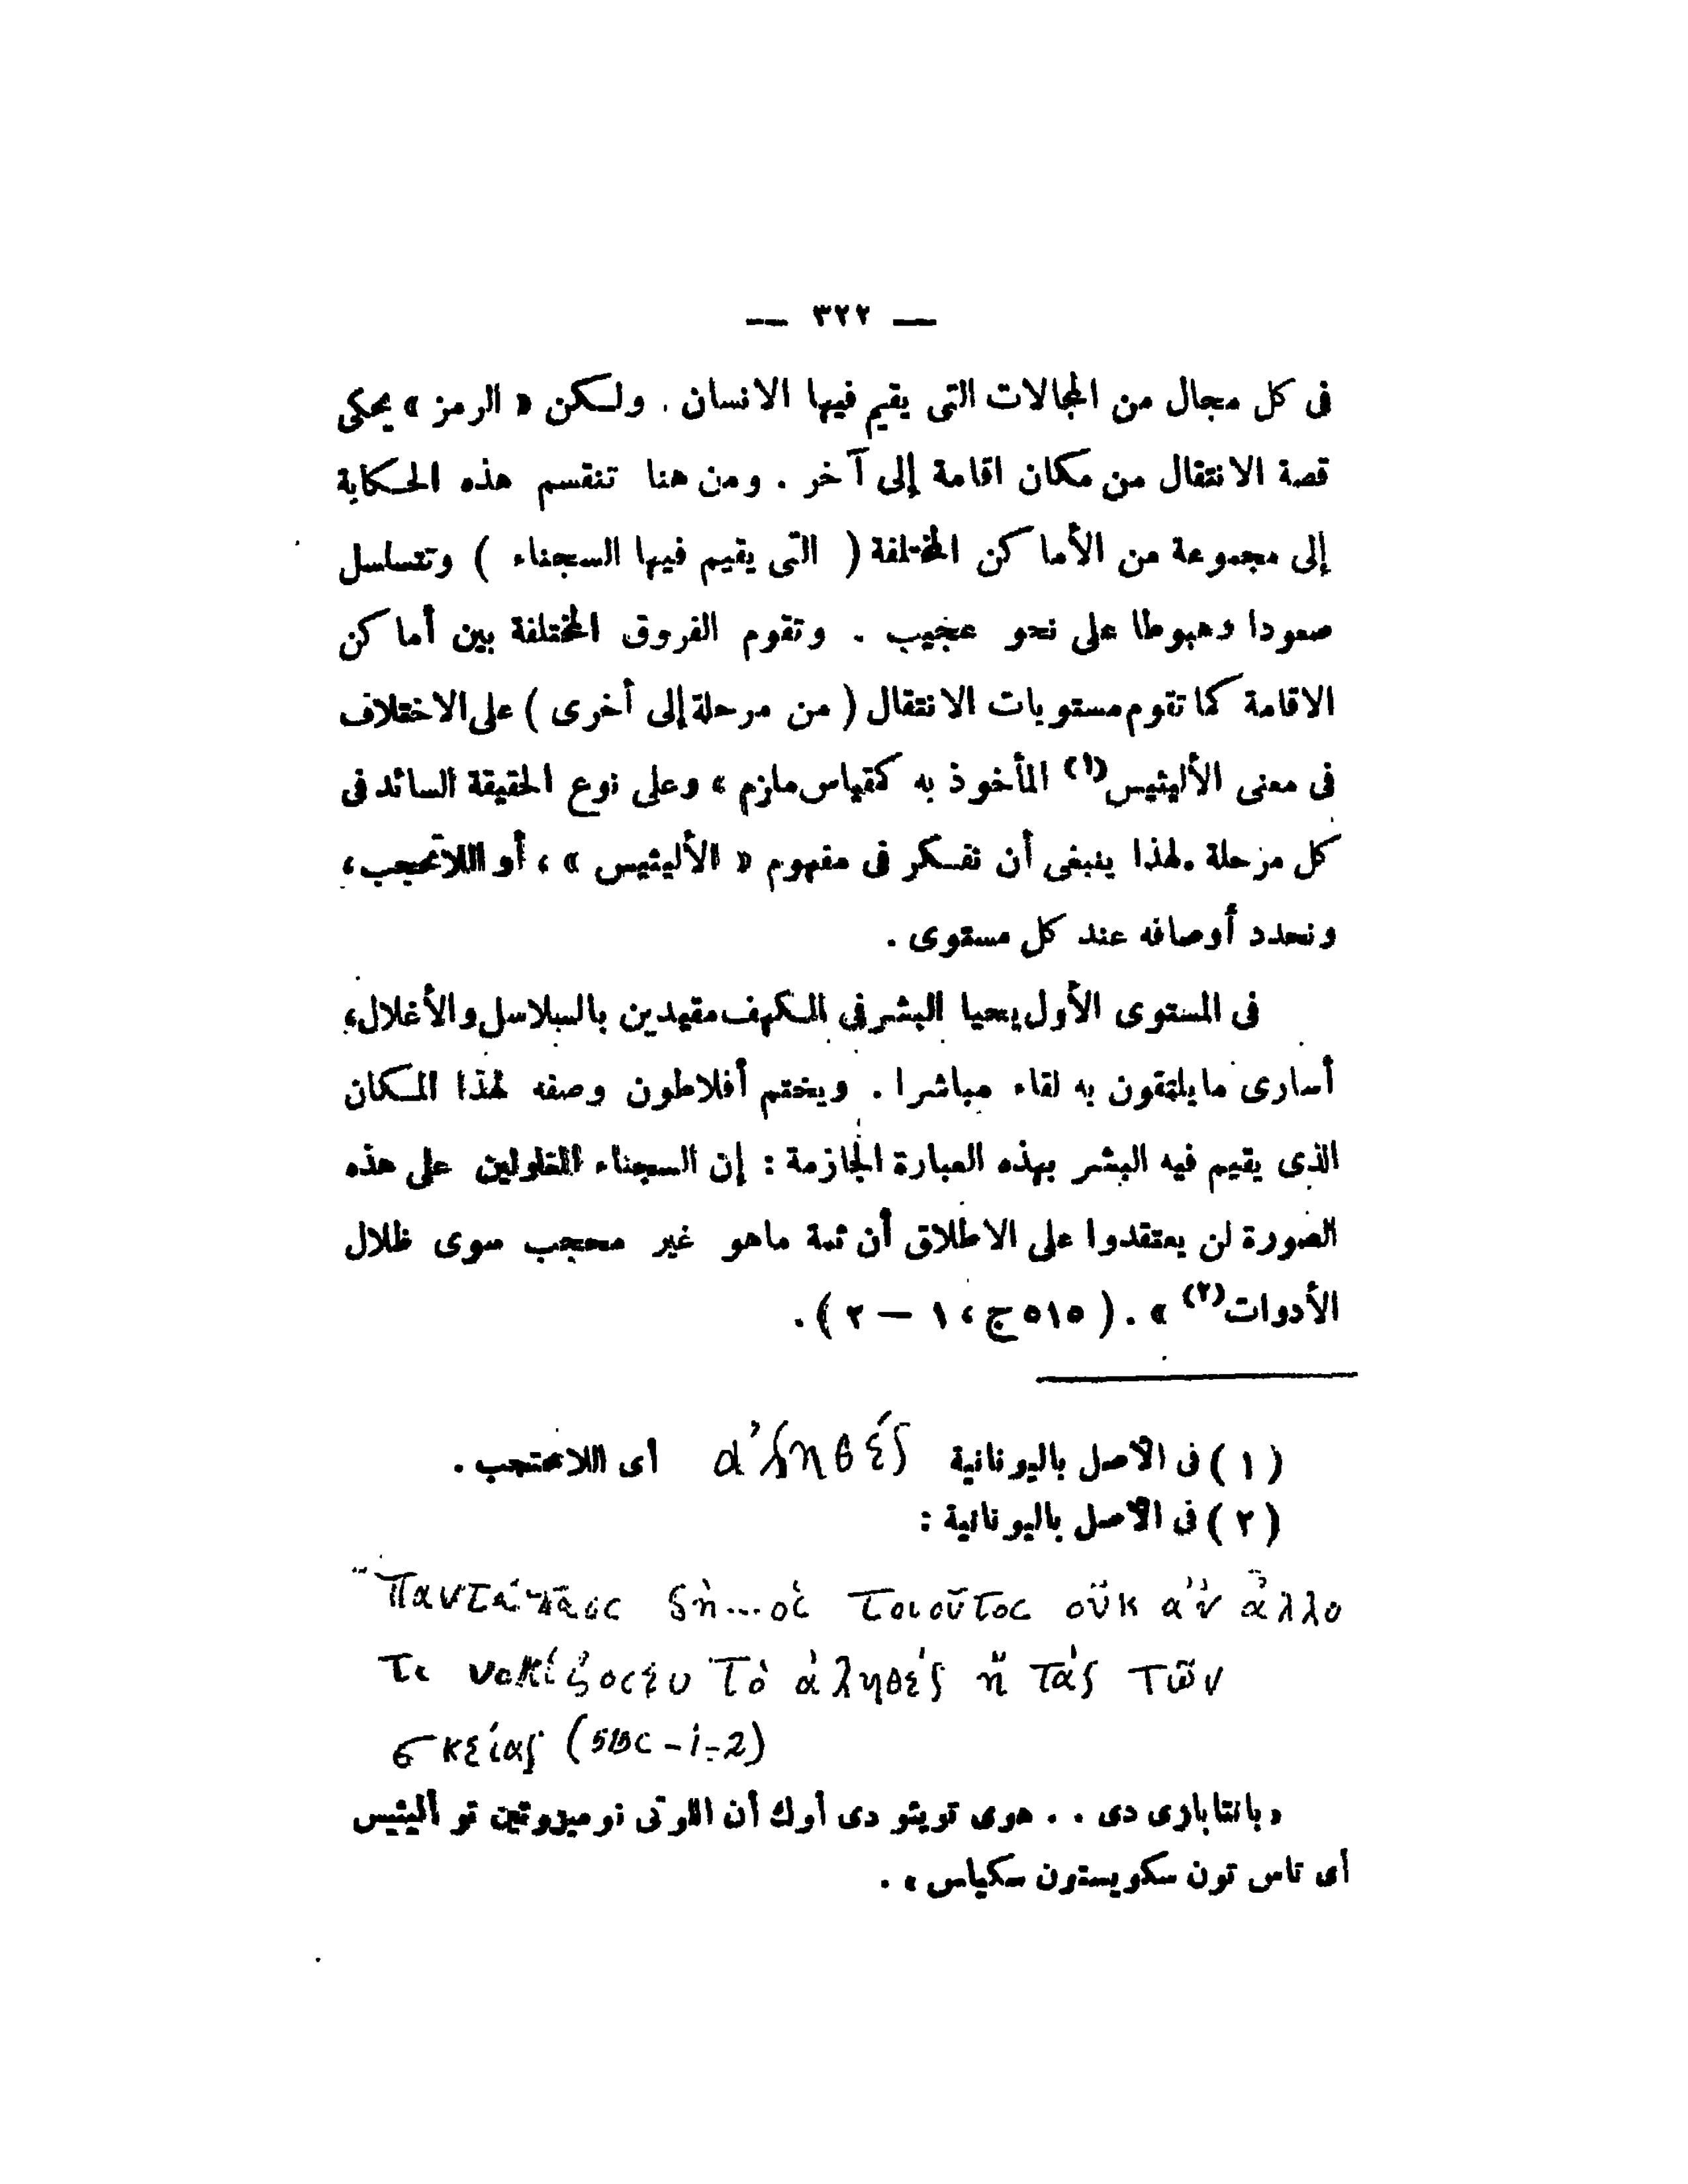 — ٣٢٢ —
فى كل مجال من المجالات التى يقيم فيها الانسان . ولكن « الرمز » يحكى
قصة الانتقال من مكان اقامة إلى آخر . ومن هنا تنقسم هذه الحكاية
إلى مجموعة من الأماكن المختلفة ( التى يقيم فيها السجناء ) وتتسلسل
صعودا وهبوطا على نحو عجيب . وتقوم الفروق المختلفة بين أماكن
الاقامة كما تقوم مستويات الانتقال ( من مرحلة إلى أخرى ) على الاختلاف
فى معنى الأليثيس(١) المأخوذ به كقياس ملزم ، وعلى نوع الحقيقة السائد فى
كل مرحلة . لهذا ينبغى أن نفكر فى مفهوم « الأليثيس » ، أو اللاتحجب ،
ونحدد أوصافه عند كل مستوى .
فى المستوى الأول يحيا البشر فى الكهف مقيدين بالسلاسل والأغلال ،
أسارى ما يلتقون به لقاء مباشرا . ويختم أفلاطون وصفه لهذا المكان
الذى يقيم فيه البشر بهذه العبارة الجازمة : إن السجناء المغلولين على هذه
الصورة لن يعتقدوا على الاطلاق أن ثمة ماهو غير محجب سوى ظلال
الأدوات(٢) » . ( ٥١٥ ج ، ١ — ٢ ) .
( ١ ) فى الأصل باليونانية ἀληθές أى اللامحتجب .
( ٢ ) فى الأصل باليونانية :
δὴ...οἱ τοιοῦτοι οὐκ ἂν ἄλλο
τι τὸ ἀληθές ἢ τὰς τῶν
σκείας (515c-1-2)
« بانتابازى دى . . هوى تويثو دى أوك أن اللوتى نوميزوتين تو أليثيس
أى تاس تون سكويستون سكياس » .